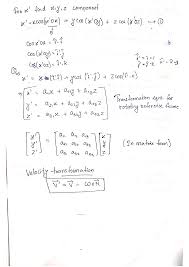 for x' find x,y,z component
x' = x cos(x'ox) + y cos(x'oy) + z cos(x'oz) —①
cos x'ox = î'.î
cos(x'oy) = î'.ĵ
cos(x'oz) = î'.k̂
x' = x (î'.î) + y (î'.ĵ) + z (î'.k̂)
x' = a₁₁x + a₁₂y + a₁₃z
y' = a₂₁x + a₂₂y + a₂₃z
z' = a₃₁x + a₃₂y + a₃₃z
Transformation eqn for
rotating reference frame
[x' y' z'] = [a₁₁ a₁₂ a₁₃ a₂₁ a₂₂ a₂₃ a₃₁ a₃₂ a₃₃] [x y z] (In matrix form)
Velocity transformation